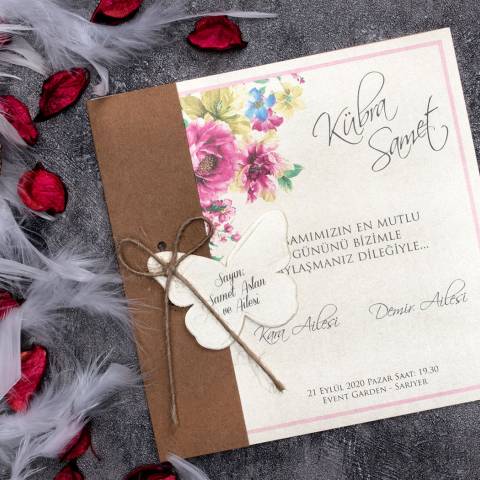 Kübra
Samet
AMIMIZIN EN MUTLU
GÜNÜNÜ BİZİMLE
YLAŞMANIZ DİLEĞİYLE...
Sayın;
Samet Aslan
ve Ailesi
Kara Ailesi
Demir Ailesi
21 EYLÜL 2020 PAZAR SAAT: 19.30
EVENT GARDEN - SARIYER